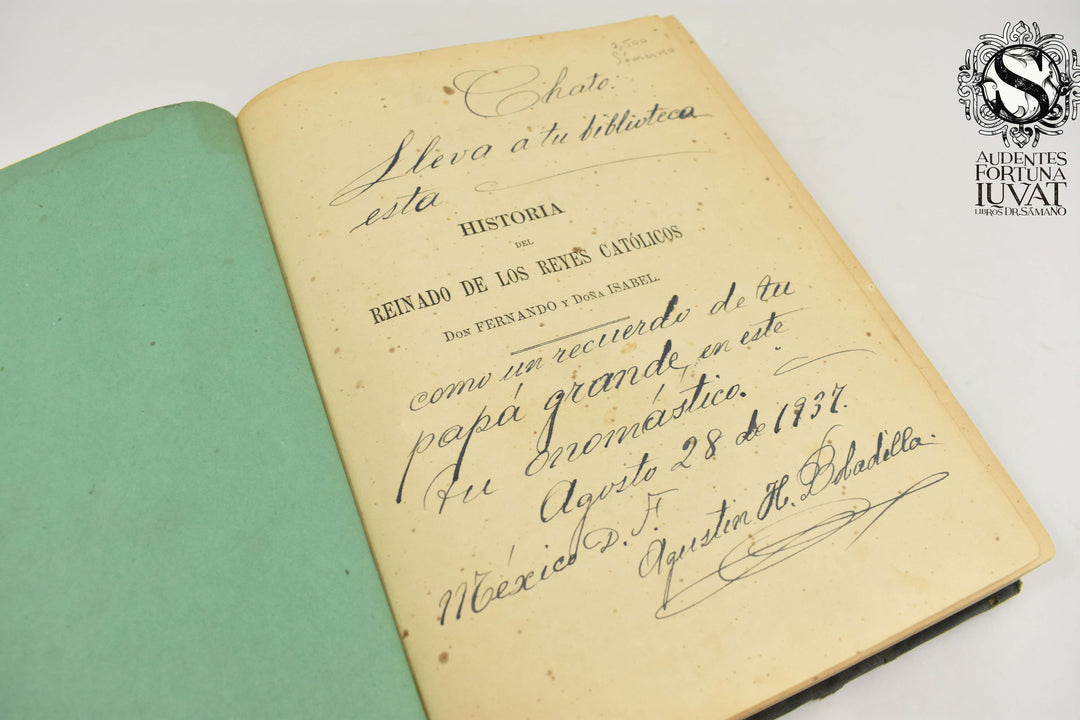 2,500
Sámano
Chato:
Lleva a tu biblioteca
esta
HISTORIA
DEL
REINADO DE LOS REYES CATÓLICOS
DON FERNANDO Y DOÑA ISABEL.
como un recuerdo de tu
papá grande, en este
tu onomástico.
Agosto 28 de 1937.
México D. F.
Agustin H. Bobadilla.
S
AUDENTES
FORTUNA
IUVAT
LIBROS DR. SÁMANO